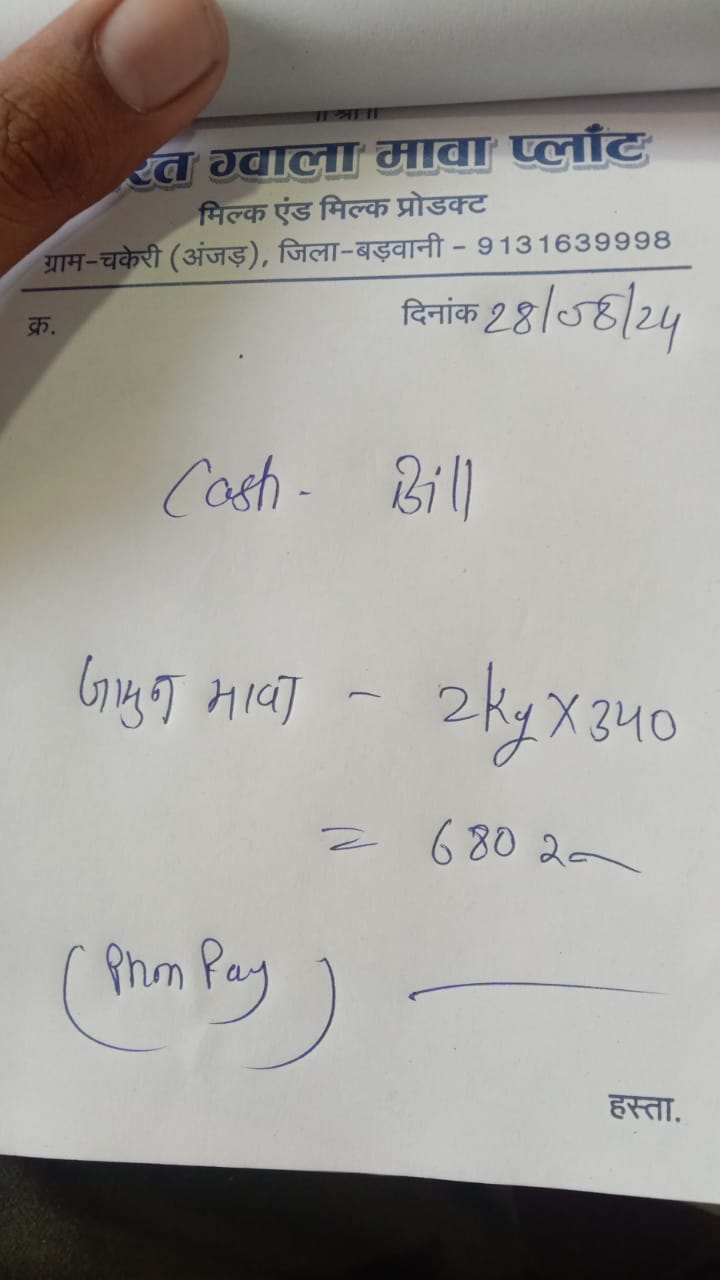 ॥ श्री ॥
ग्वाला मावा प्लाँट
मिल्क एंड मिल्क प्रोडक्ट
ग्राम-चकेरी (अंजड़), जिला-बड़वानी - 9131639998
क्र. दिनांक 28/08/24
Cash - Bill
जामुन मावा - 2kg X 340
= 680 रु
(Phon Pay)
हस्ता.